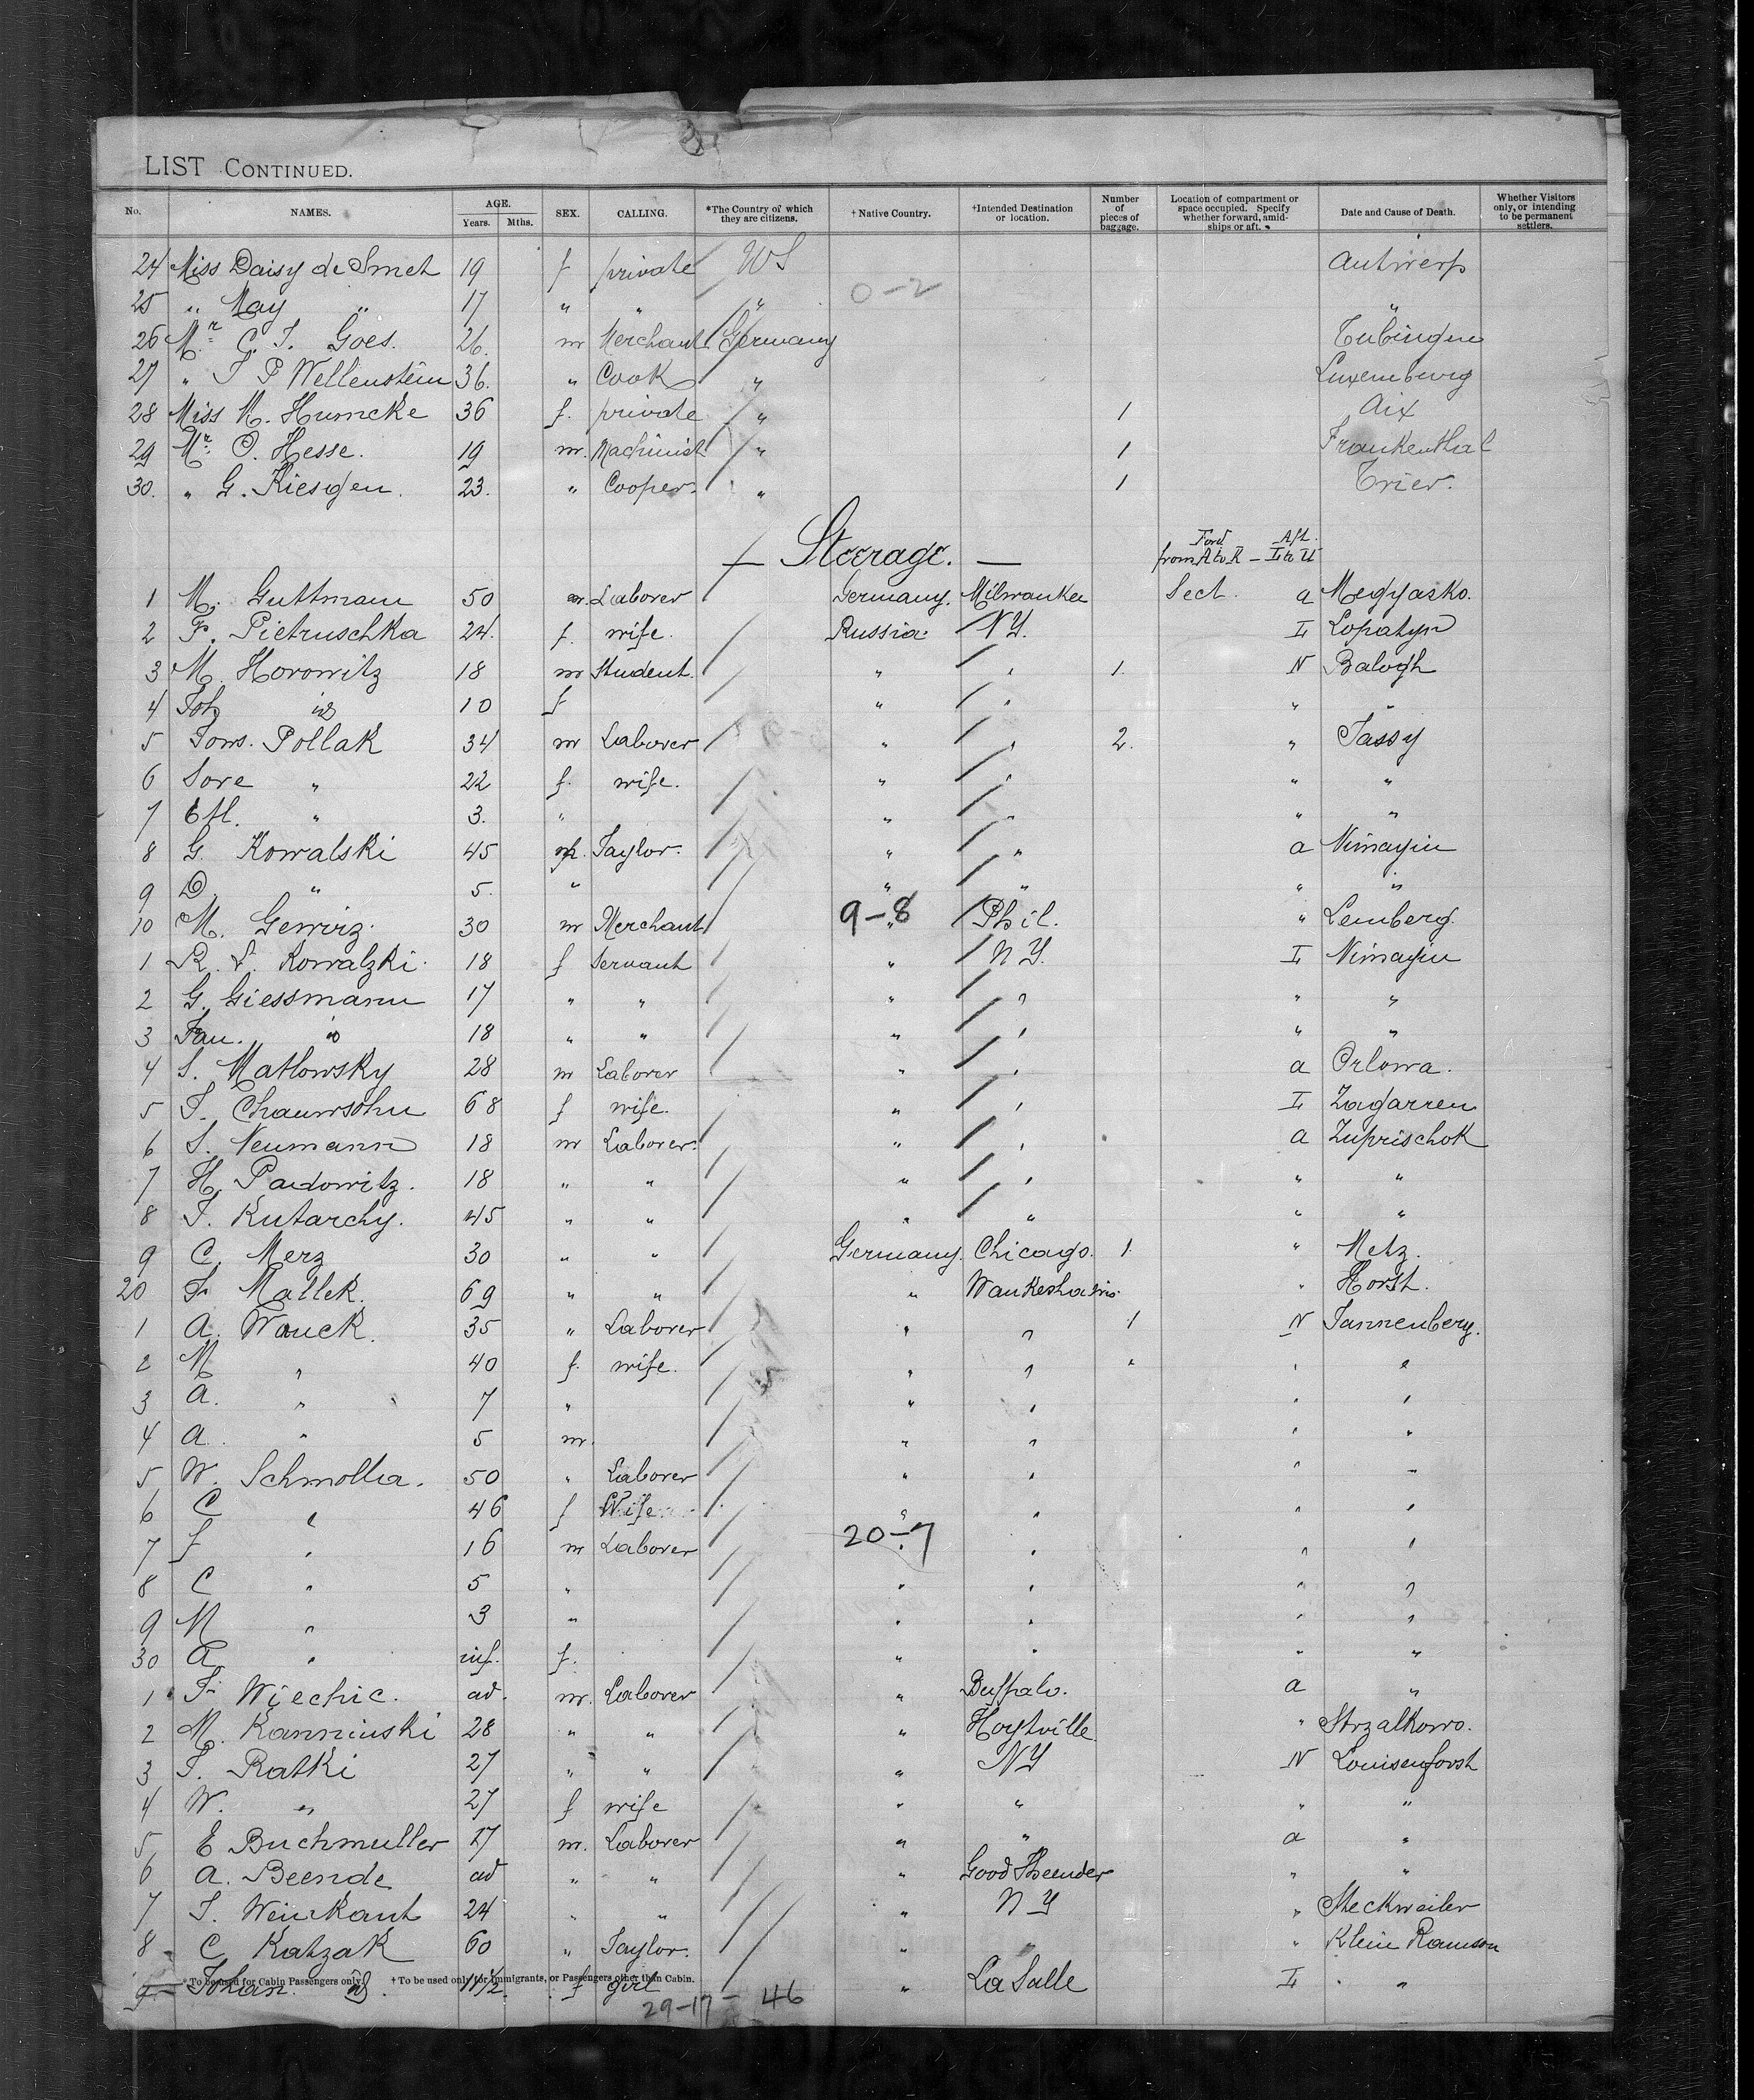 LIST CONTINUED.
No. NAMES. AGE. Years. Mths. SEX. CALLING. *The Country of which they are citizens. †Native Country. †Intended Destination or location. Number of pieces of baggage. Location of compartment or space occupied. Specify whether forward, amidships or aft. Date and Cause of Death. Whether Visitors only, or intending to be permanent settlers.
24 Miss Daisy de Smet 19 f private US Antwerp
25 " May " 17 " " " 0-2 "
26 Mr C. J. Goes. 26. m Merchant Germany Tubingen
27 " J P Wellenstein 36. " Cook " Luxemburg
28 Miss M. Humcke 36 f. private " 1 Aix
29 Mr. O. Hesse. 19 m. Machinist " 1 Frankenthal
30. " G. Kiesgen. 23. " Cooper. " 1 Trier.
— Steerage. — Ford from A to K – Aft. L to U
1 M. Guttmann 50 m. Laborer Germany. Milwaukee Sect. a Megyasko.
2 P. Pietruschka 24. f. wife. Russia. NY. L Lopatyn
3 M. Horowitz 18 m Student. " " 1. N Balogh
4 id 10 f " " " "
5 Pollak 34 m Laborer " " 2. " Jassy
6 Sore " 22 f. wife. " " " "
7 Etl. " 3. " " " " "
8 G. Kowalski 45 m. Taylor. " " a Nimayin
9 D. " 5. " " " " "
10 M. Gewirz. 30 m Merchant 9-8 " Phil. " Lemberg.
1 R. L. Kowalzki. 18 f Servant " NY. L Nimayin
2 G. Giessmann 17 " " " " " "
3 Fan. id 18 " " " " " "
4 S. Matlowsky 28 m Laborer " " a Orlowa.
5 J. Chaumsohn 68 f wife. " " L Zagarren
6 S. Neumann 18 m Laborer. " " a Zuprischok
7 H. Padowitz. 18 " " " " " "
8 J. Kutarchy. 45 " " " " " "
9 C. Merz 30 " " Germany. Chicago. 1. " Metz.
20 F. Mallek. 69 " " " Waukesha Wis. " Horst.
1 A. Wauck. 35 " Laborer " " 1 N Tannenberg.
2 M " 40 f. wife. " " " " "
3 A. " 7 " " " " "
4 A. " 5 m. " " " "
5 W. Schmolla. 50 " Laborer " " " "
6 C " 46 f Wife " " " "
7 J " 16 m Laborer 20-7 " " " "
8 C " 5 " " " " "
9 M " 3 " " " " "
30 A " inf. f. " " " "
1 F. Wiechic. ad. m. Laborer " Buffalo. a "
2 M. Kanniuski 28 " " " Hoytville " Strzalkowo.
3 J. Ratki 27 " " " NY N Louisenforst
4 W. " 27 f wife " " " "
5 E Buchmuller 27 m. Laborer " " a "
6 A. Beende ad " " " Good " "
7 J. Weinkant 24 " " " NY " Steckweiler
8 C. Katzak 60 " Taylor. " " " Klein
9 Johan. id. 11½ f girl " La Salle L "
* To be used for Cabin Passengers only. † To be used only for Immigrants, or Passengers other than Cabin.
29-17- 46